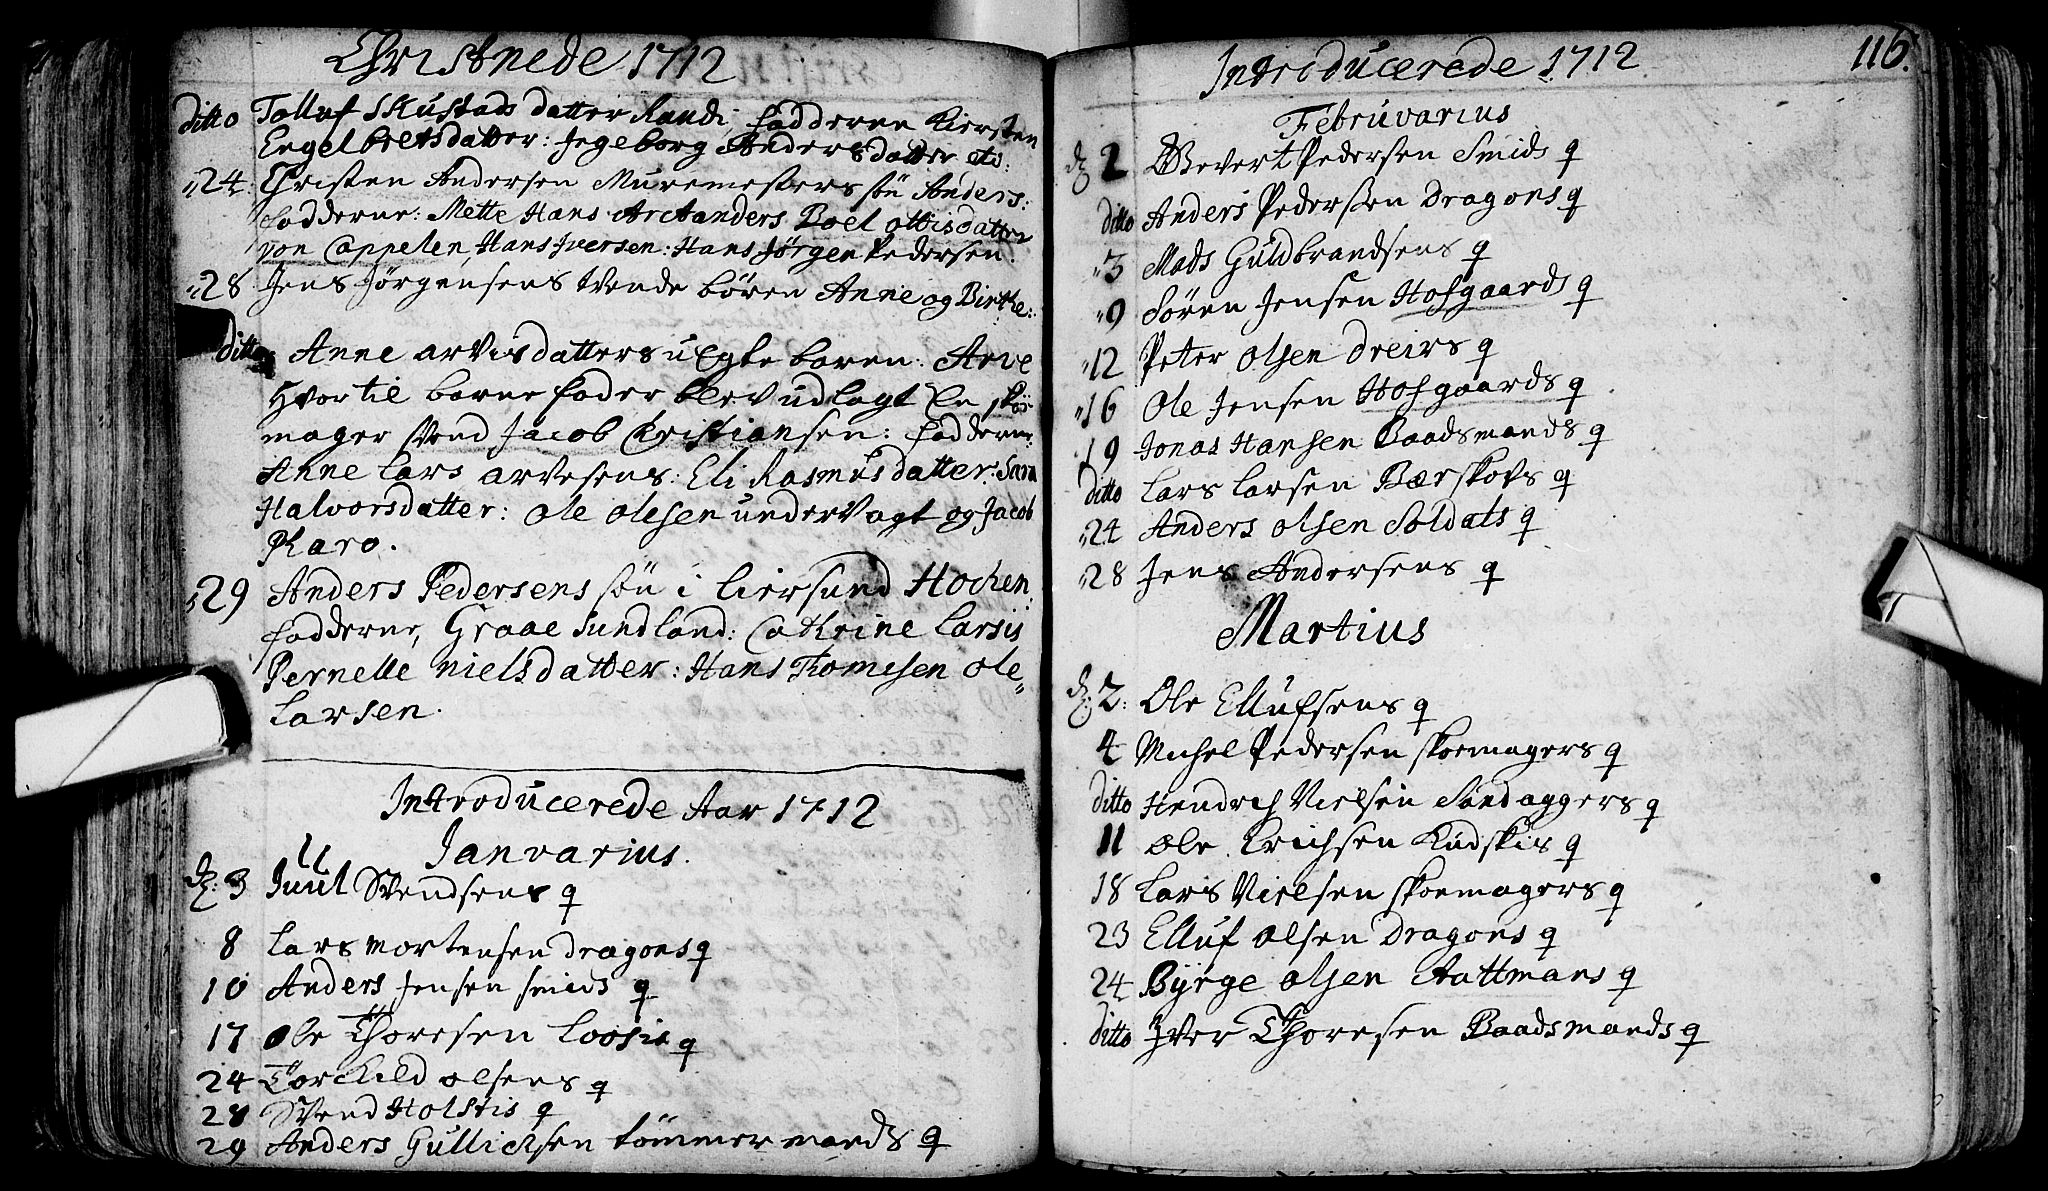 Christnede 1712
ditto Tolluf Skustads datter Randi fadderne Kiersten
Engelbretsdatter: Jngeborg Andersdatter etc:
24. Christen Andersen Muremesters sön Anders:
fadderne: Mette Hans Arctanders Boel ottisdatter
von Cappelen, Hans Jversen: Hans Jörgen Pedersen.
28. Jens Jörgensens tvende bören Anne og Birthe:
ditto Anne arvisdatters uEgte baren: Arve
Hvortil barne fader blev udlagt En skoe
mager svend Jacob Christiansen: fadderne
Anne Lars arvesens: Eli Rasmusdatter: Sara
Halvorsdatter: Ole olesen undervagt og Jacob
Pharo.
29 Anders Pedersens sön i Liersund Hochen,
fadderne, Graae Sundland: Cathrine Larsis
Pernelle nielsdatter: Hans Thomesen Ole
Larsen.
Introducerede Aar 1712
Janvarius.
d: 3 Juul Svendsens q
8 Lars Mortensen dragons q
10 Anders Jensen smids q
17 Ole Thoresen Loosis q
24 Torchild olsens q
28 Svend Holstis q
29 Anders Gullichsen tömmermands q
Introducerede 1712
116.
Februvarius
d: 2 Evert Pedersen Smids q
ditto Anders Pedersen Dragons q
3 Mads Guldbrandsens q
9 Sören Jensen Hofgaards q
12 Peter olsen dreirs q
16 Ole Jensen Hofgaards q
19 Jonas Hansen Baadsmands q
ditto Lars Larsen Bærskovs q
24 Anders olsen Soldats q
28 Jens Andersens q
Martius
d: 2: Ole Ellufsens q
4 Michel Pedersen skoemagers q
ditto Hendrch Nielsen Sandaggers q
11 Ole Erichsen Kudskis q
18 Lars Nielsen skoemagers q
23 Elluf olsen Dragons q
24 Byrge olsen Aattmans q
ditto Jver Thoresen Baadsmands q